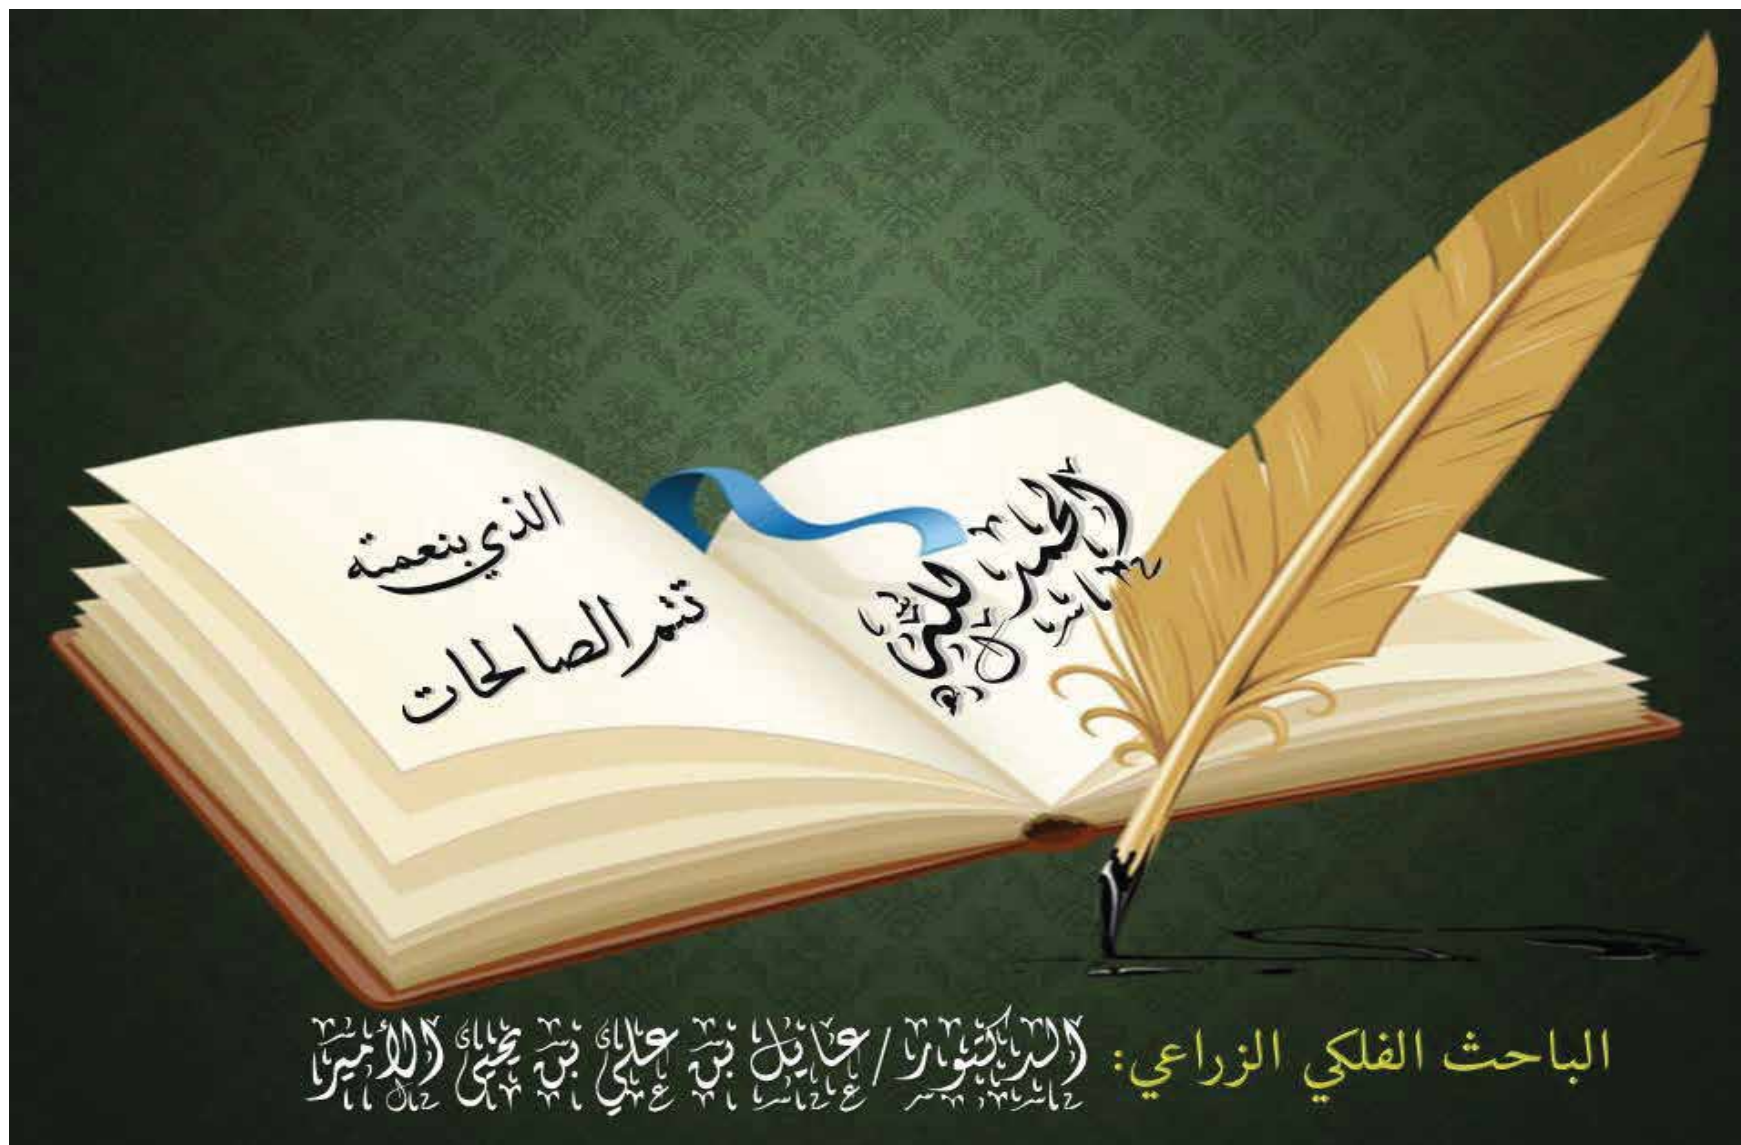 الحمد لله
الذي بنعمته
تتم الصالحات
الباحث الفلكي الزراعي: الدكتور/ عايل بن علي بن يحيى الأمير